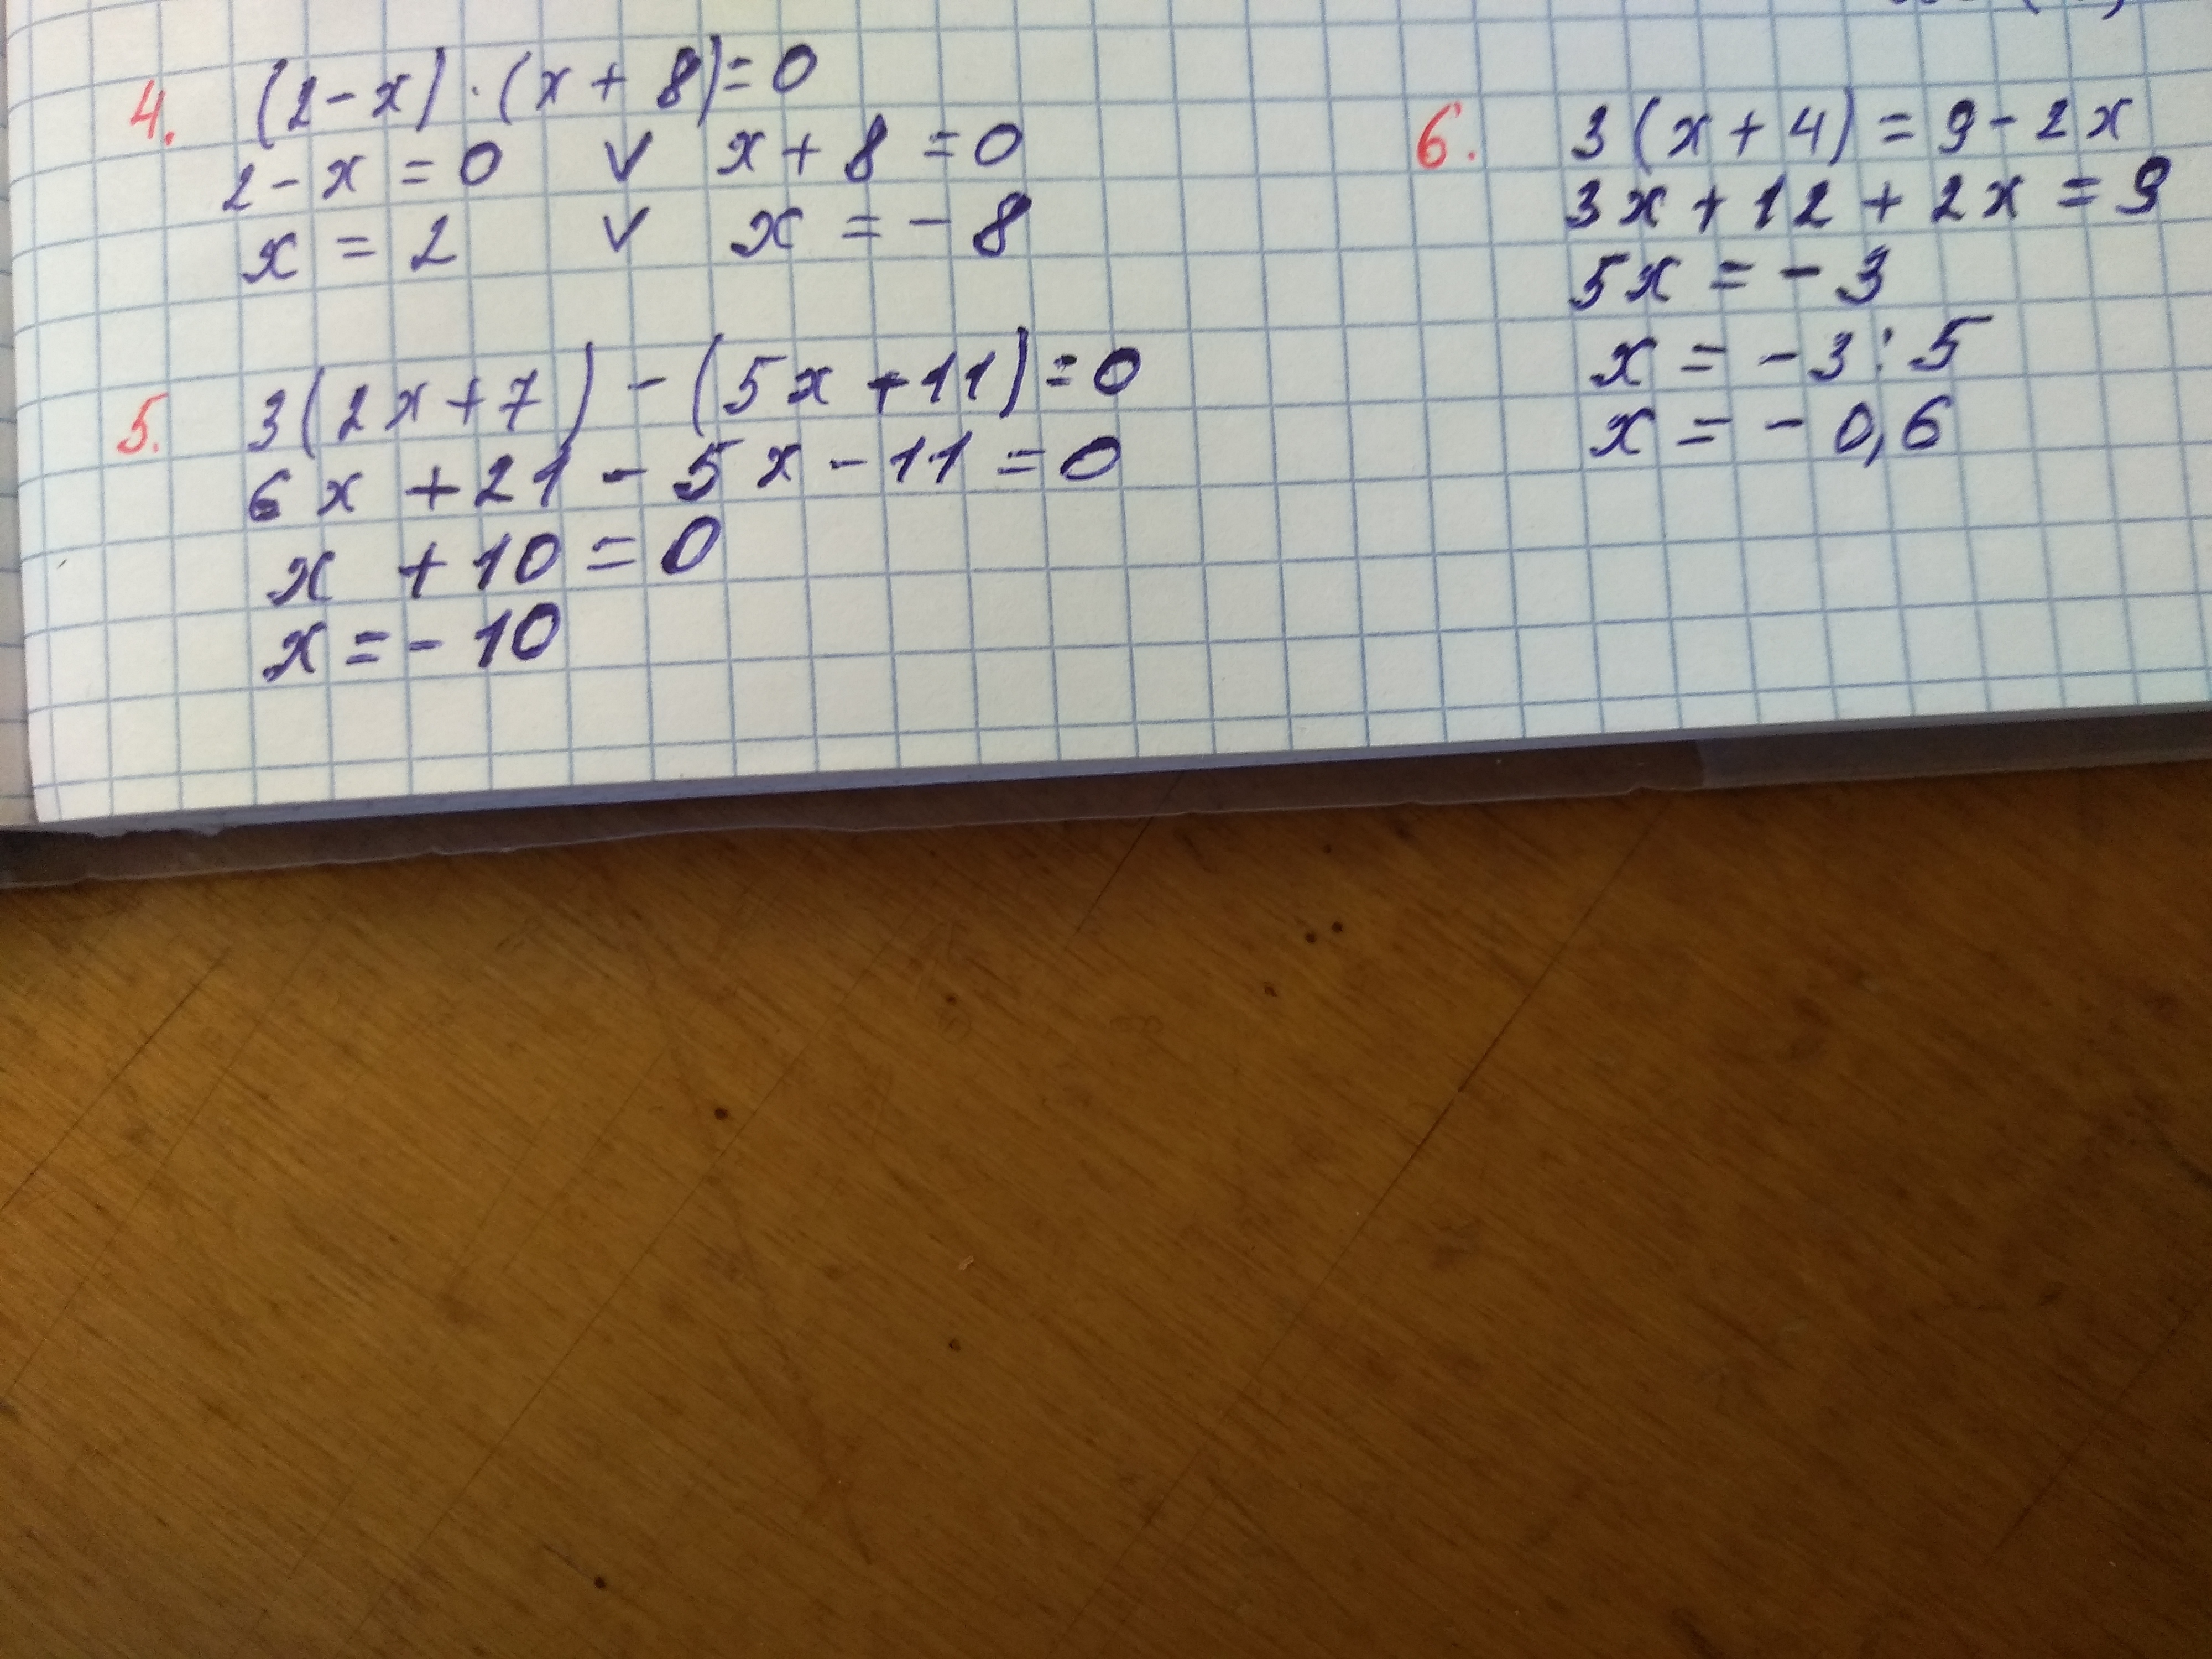 4. (2-x)·(x+8)=0
2-x=0 ∨ x+8=0
x=2 ∨ x=-8
5. 3(2x+7)-(5x+11)=0
6x+21-5x-11=0
x+10=0
x=-10
6. 3(x+4)=9-2x
3x+12+2x=9
5x=-3
x=-3:5
x=-0,6